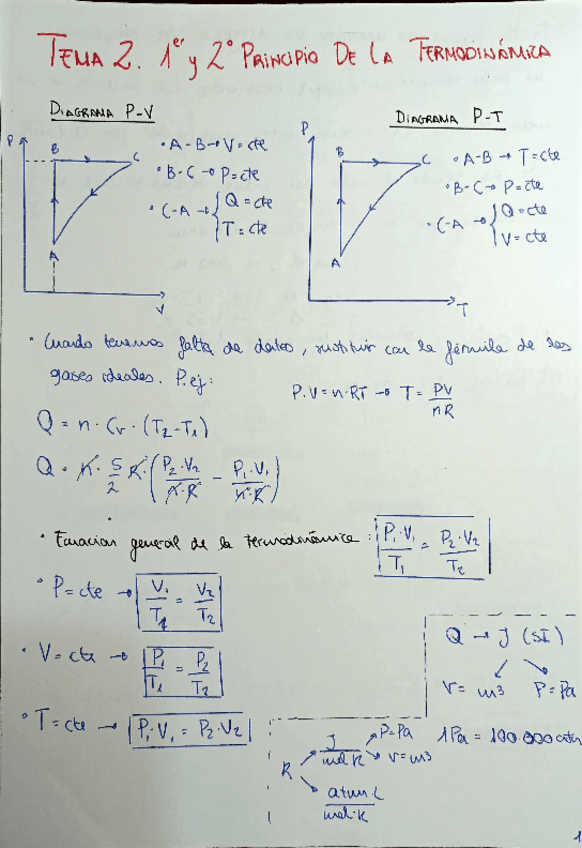 TEMA 2. 1er y 2º PRINCIPIO DE LA TERMODINÁMICA
DIAGRAMA P-V
P
B
C
A
V
• A-B → V = cte
• B-C → P = cte
• C-A → { Q = cte
T = cte
DIAGRAMA P-T
P
B
C
A
T
• A-B → T = cte
• B-C → P = cte
• C-A → { Q = cte
V = cte
• Cuando tenemos falta de datos, sustituir con la fórmula de los
gases ideales. P.ej:
P·V = n·RT → T = PV/nR
Q = n · Cv · (T2-T1)
Q = n · 5/2 R · (P2·V2/n·R - P1·V1/n·R)
• Ecuacion general de la termodinámica: P1·V1/T1 = P2·V2/T2
• P = cte → V1/T1 = V2/T2
• V = cte → P1/T1 = P2/T2
• T = cte → P1·V1 = P2·V2
Q → J (SI)
V = m3 P = Pa
1Pa = 100.000 atm
R
J/mol·K
P = Pa
V = m3
atm·L/mol·K
1